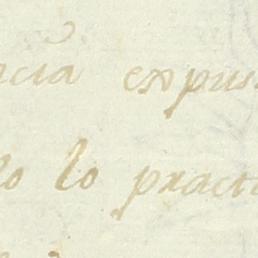 ncia expus
lo lo practi